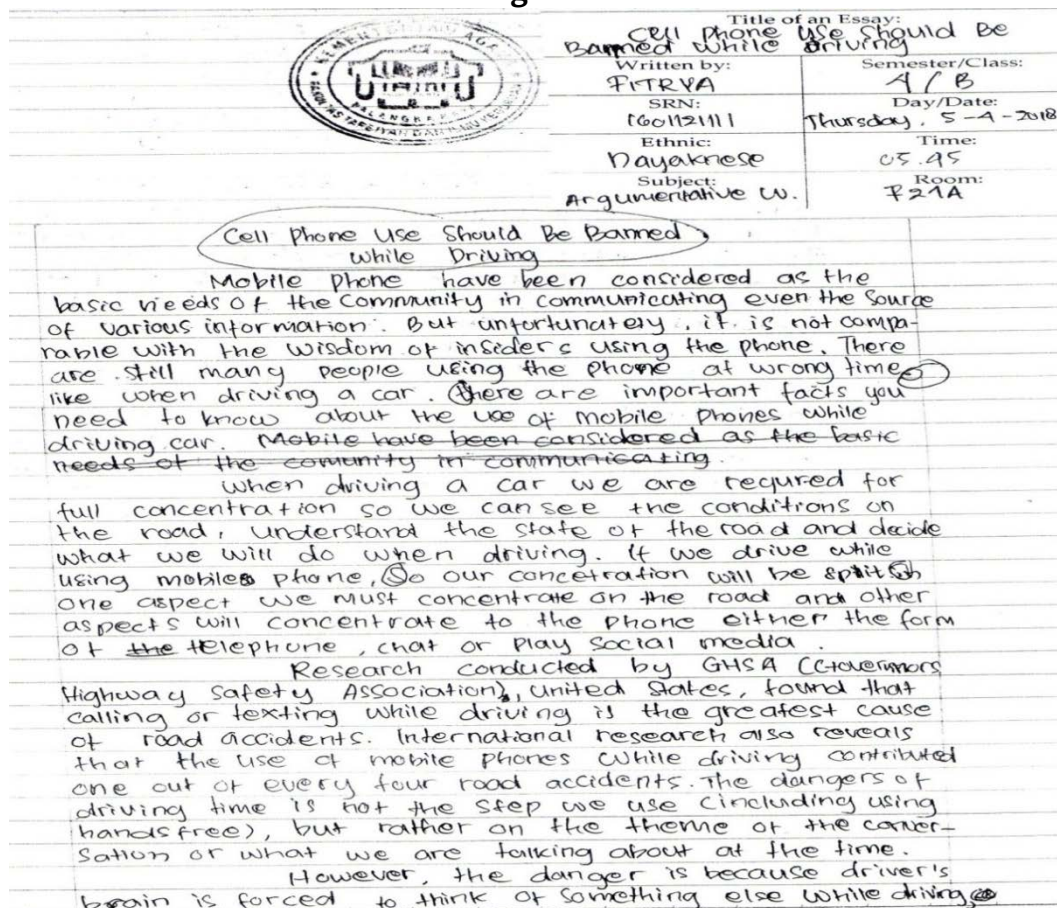 Title of an Essay:
Cell Phone Use Should Be
Banned While Driving
Written by:
Semester/Class:
FITRYA
4/B
SRN:
Day/Date:
1601121111
Thursday, 5-4-2018
Ethnic:
Time:
Dayaknese
05.45
Subject:
Room:
Argumentative W.
F21A
PALANGKARAYA
Cell Phone Use Should Be Banned
While Driving
Mobile Phone have been considered as the
basic needs of the Community in communicating even the Source
of various information. But unfortunately, it is not compa-
rable with the wisdom of insiders using the phone. There
are still many people using the phone at wrong time
like when driving a car. there are important facts you
need to know about the use of mobile phones while
driving car. Mobile have been considered as the basic
needs of the comunity in communicating.
When driving a car we are requred for
full concentration so we can see the conditions on
the road, understand the state of the road and decide
what we will do when driving. If we drive while
using mobiles phone, So our concetration will be split
one aspect we must concentrate on the road and other
aspects will concentrate to the phone either the form
of the telephone, chat or play social media.
Research conducted by GHSA (Governors
Highway Safety Association), United States, found that
calling or texting while driving is the greatest cause
of road accidents. International research also reveals
that the use of mobile phones while driving contributed
one out of every four road accidents. The dangers of
driving time is not the step we use (including using
handsfree), but rather on the theme of the conver-
sation or what we are talking about at the time.
However, the danger is because driver's
brain is forced to think of something else while driving